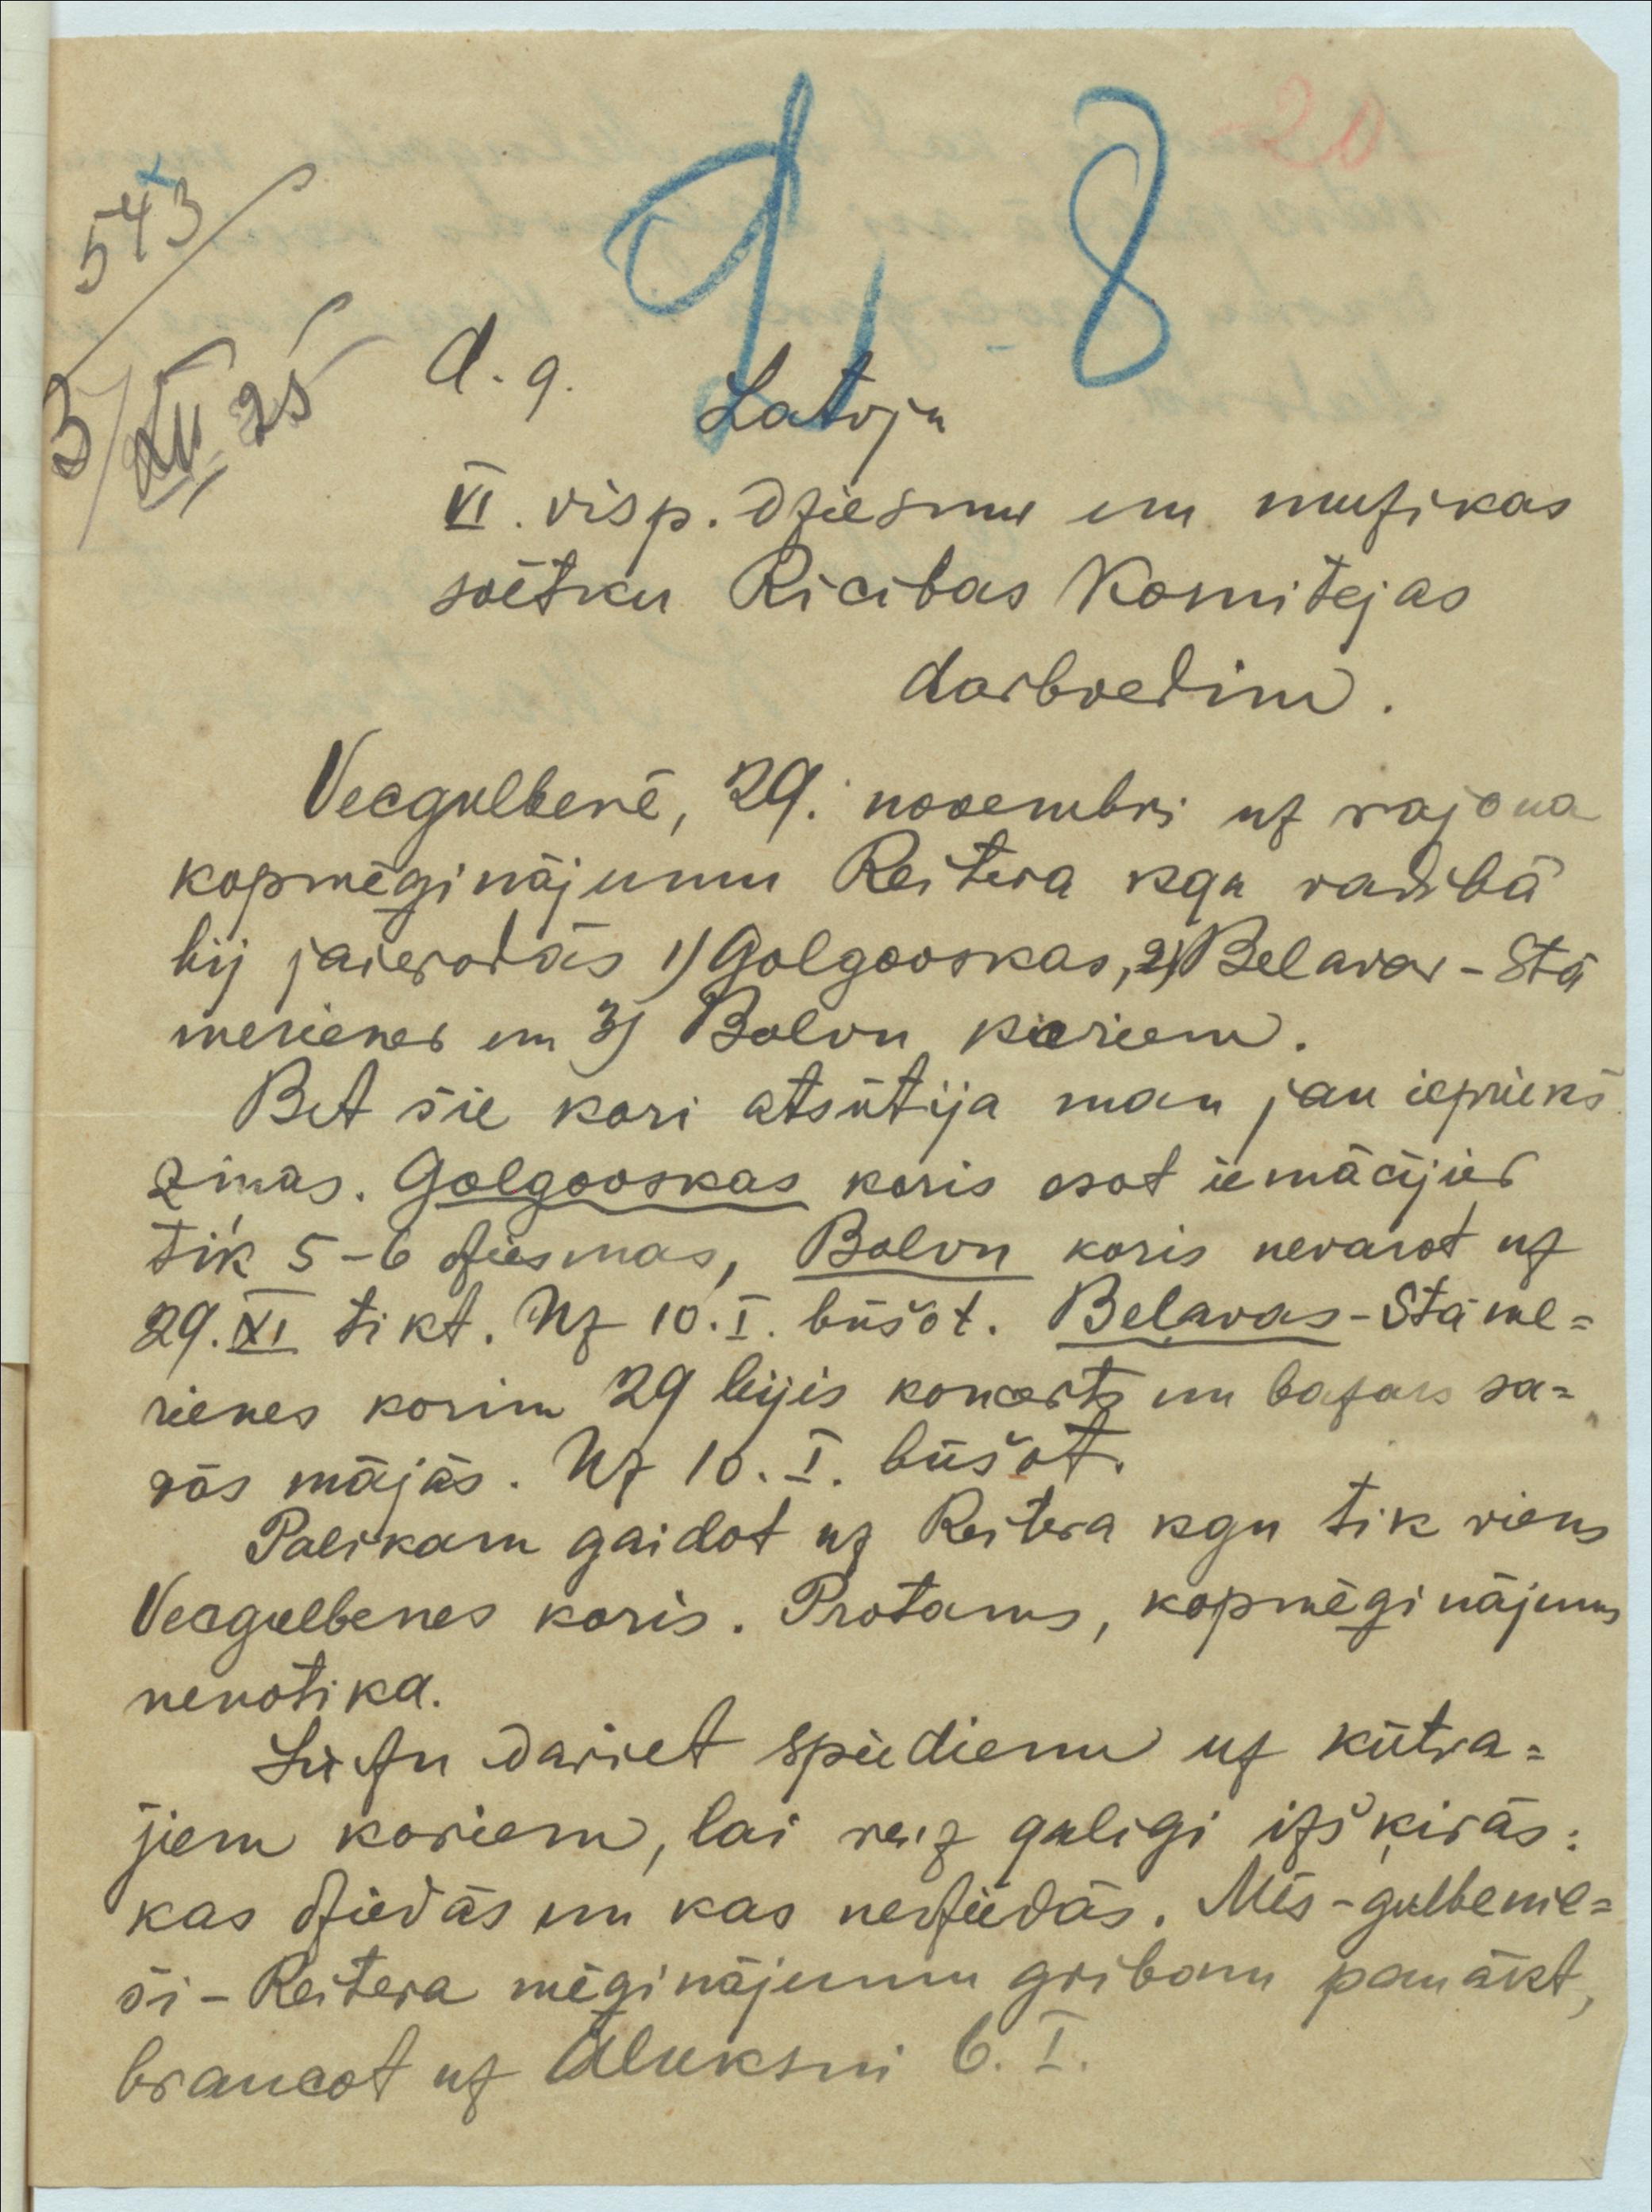 20
543
3/XII 25
9, 8
d. g.
Latvju
VI. visp. dziesmu un muzikas
svētku Rīcibas Komitejas
darbvedim.
Vecgulbenē, 29. novembri uz rajona
kopmēģinājumu Reitera kga vadibā
bij jaierodās 1) Golgovskas, 2) Belavas-Stā
merienes un 3) Bolvu koriem.
Bet šie kori atsūtija man jau iepriekš
ziņas. Golgovskas koris esot iemācijies
tik 5-6 dziesmas, Bolvu koris nevarot uz
29. XI tikt. Uz 10. I. būšot. Belavas-Stāme=
rienes korim 29 bijis koncerts un bazars sa=
vās mājās. Uz 10. I. būšot.
Palikam gaidot uz Reitera kgu tik viens
Vecgulbenes koris. Protams, kopmēģinājums
nenotika.
Ludzu dariet spiedienu uz kūtra=
jiem koriem, lai reiz galigi izšķirās:
kas dziedās un kas nedziedās. Mēs-gulbenie=
ši-Reitera mēģinājumu gribam panākt,
braucot uz Aluksni 6. I.